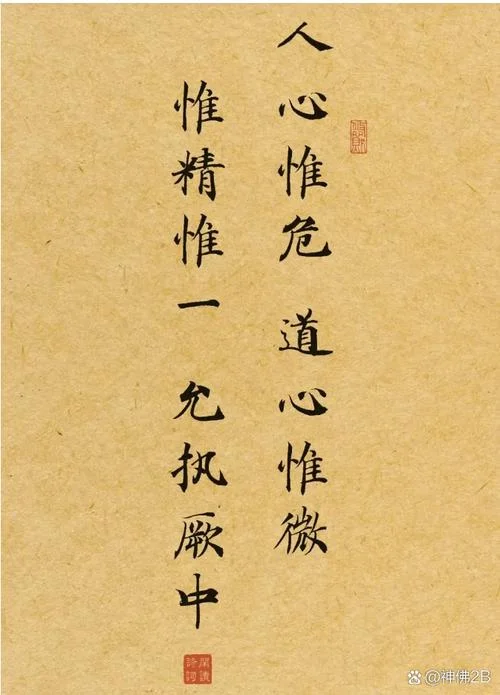 人心惟危 道心惟微
惟精惟一 允执厥中
@神佛2B